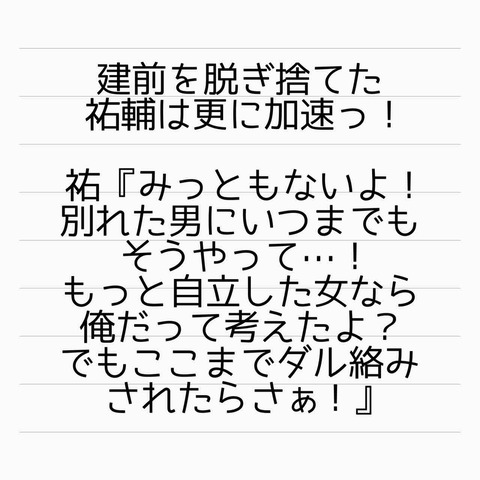 建前を脱ぎ捨てた
祐輔は更に加速っ！
祐『みっともないよ！
別れた男にいつまでも
そうやって…！
もっと自立した女なら
俺だって考えたよ？
でもここまでダル絡み
されたらさぁ！』